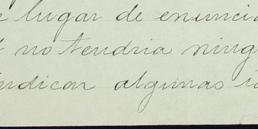 lugar de enuncia
no tendria ning
indicar algunas